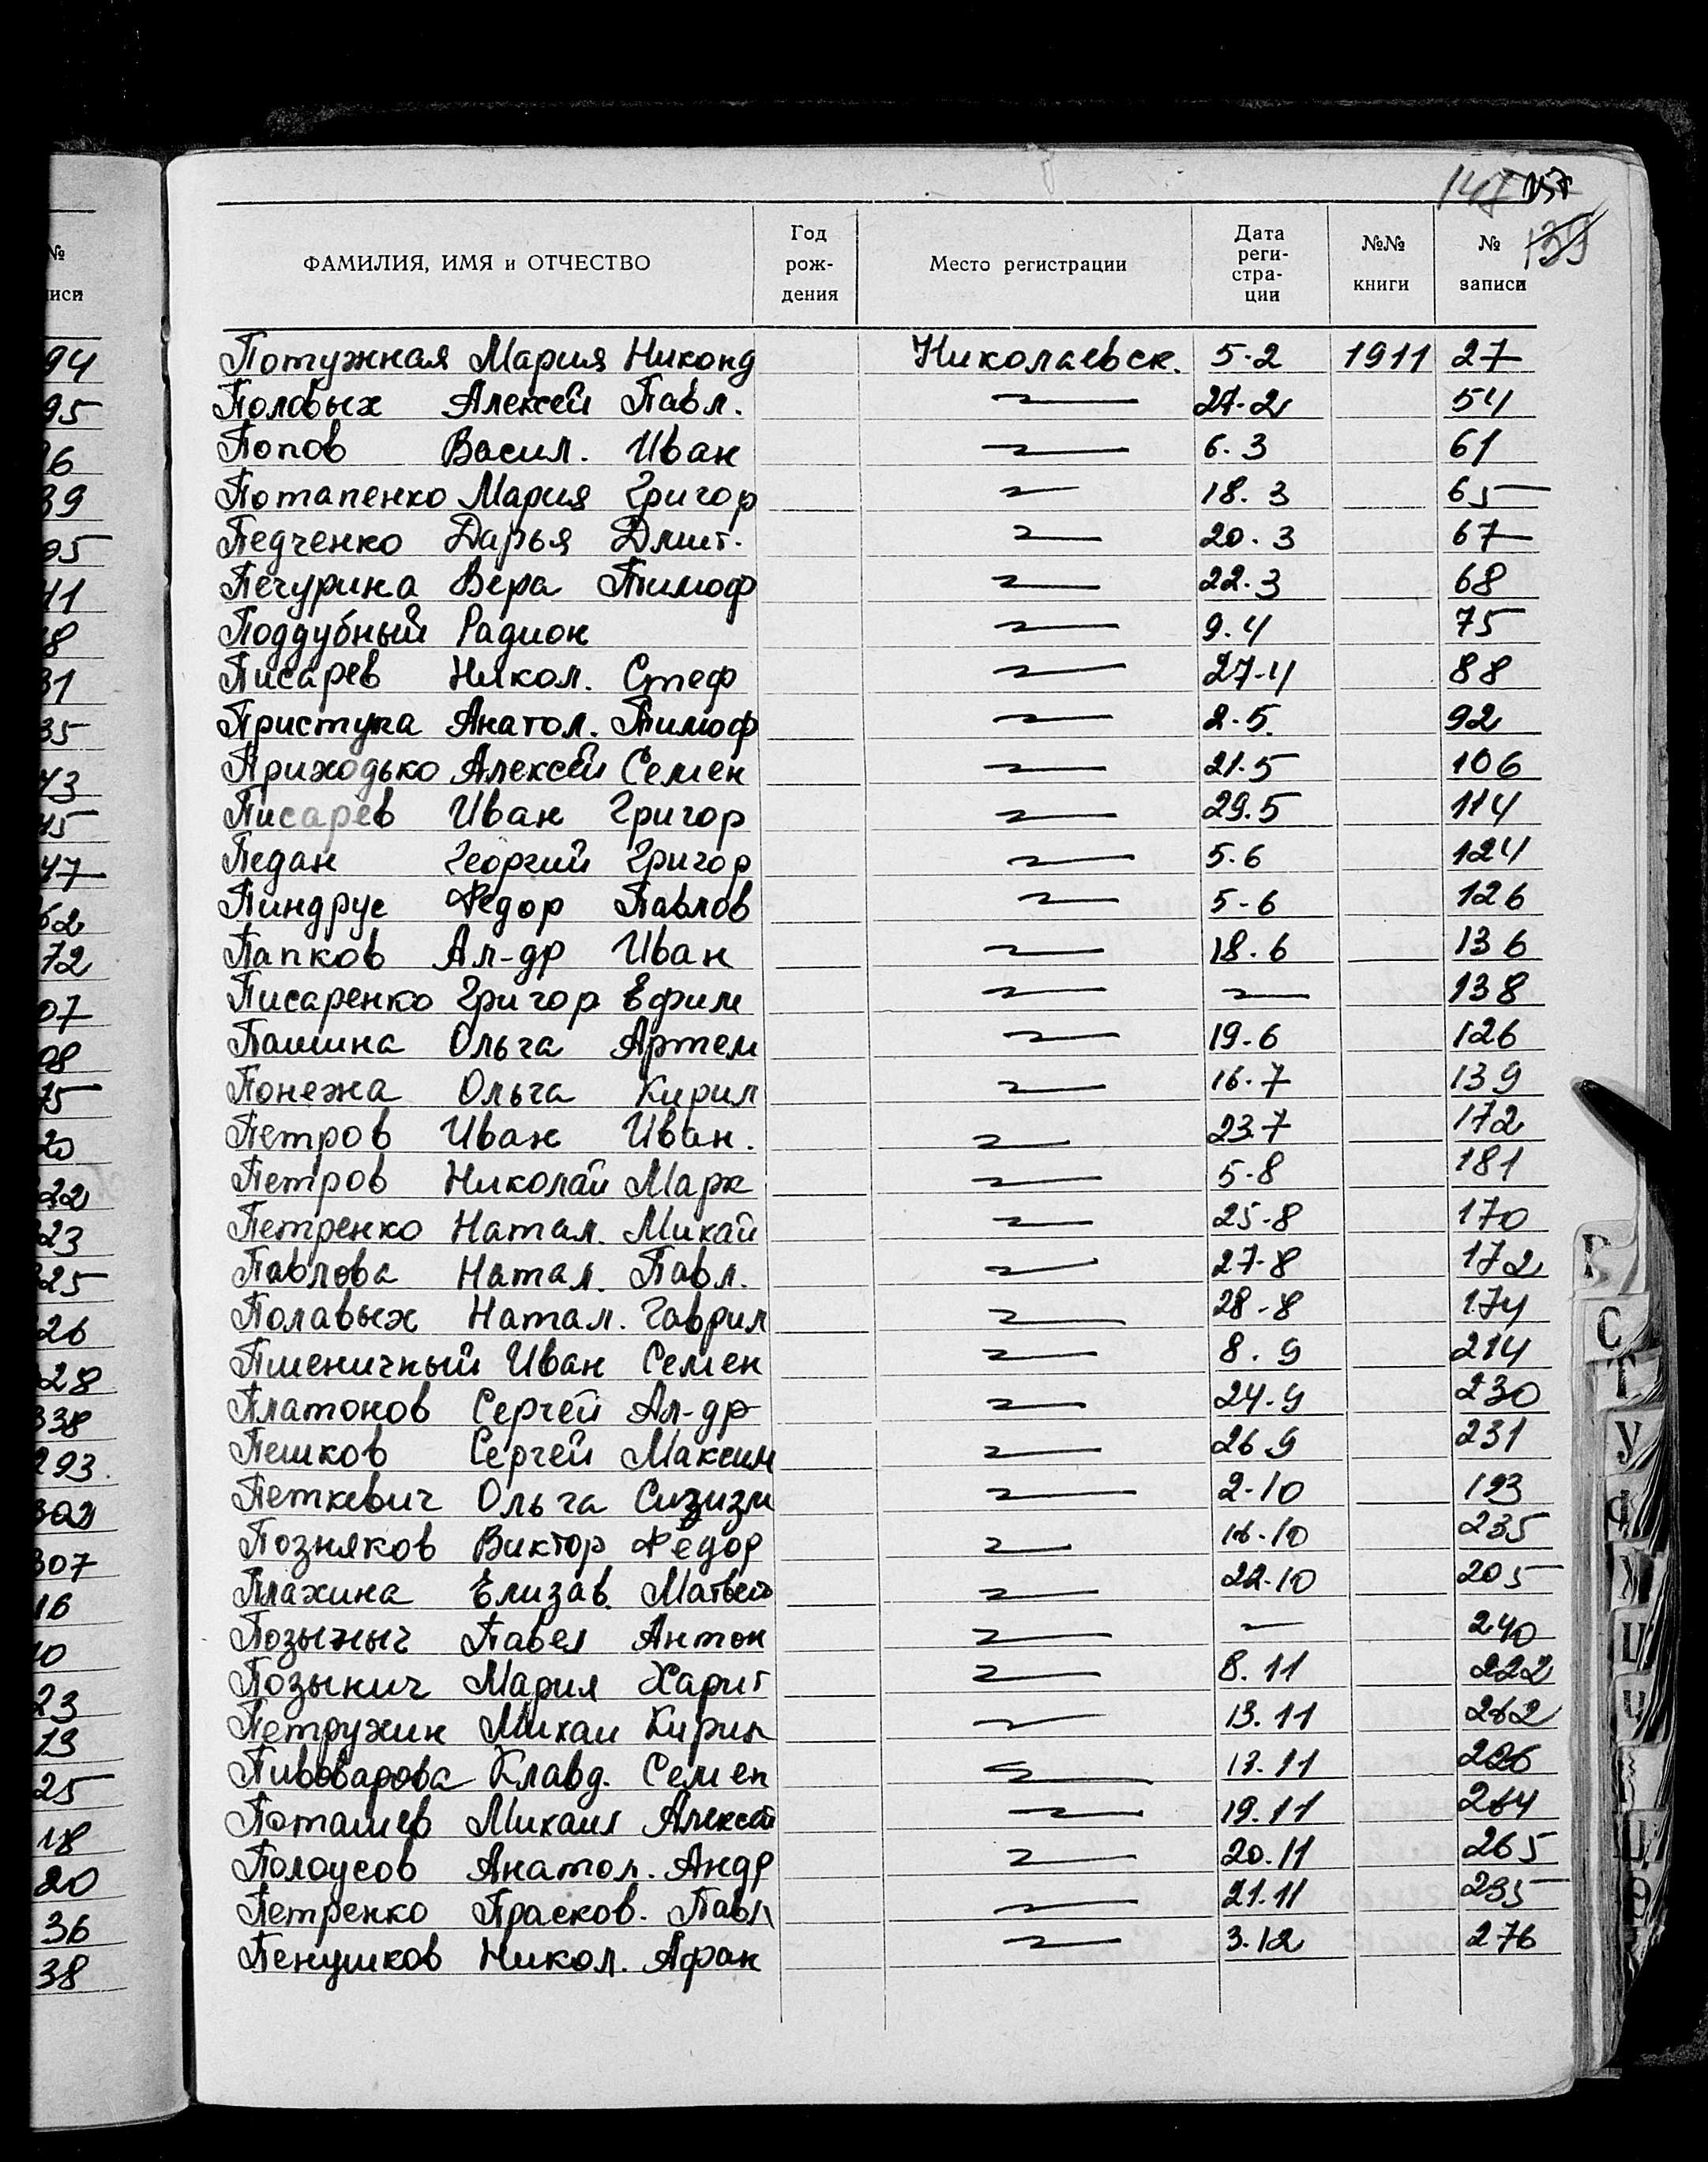 147 157
139
№ записи
ФАМИЛИЯ, ИМЯ и ОТЧЕСТВО Год рождения Место регистрации Дата регистрации №№ книги № записи
94 Потужная Мария Никонд Николаевск. 5-2 1911 27
95 Половых Алексей Павл. 27-2 54
Попов Васил. Иван 6.3 61
Потапенко Мария Григор 18.3 65
Педченко Дарья Дмит. 20.3 67
Печурина Вера Тимоф 22.3 68
Поддубный Радион 9.4 75
Писарев Никол. Стеф 27-4 88
Приступа Анатол. Тимоф 2-5. 92
Приходько Алексей Семен 21.5 106
Писарев Иван Григор 29.5 114
Педан Георгий Григор 5.6 124
Пиндрус Федор Павлов 5-6 126
Папков Ал-др Иван 18.6 136
Писаренко Григор Ефим 138
Пашина Ольга Артем 19.6 126
Понежа Ольга Кирил 16.7 139
Петров Иван Иван. 23.7 172
Петров Николай Марк 5-8 181
Петренко Натал. Михай 25-8 170
Павлова Натал. Павл. 27-8 172
Полавых Натал. Гаврил 28-8 174
Пшеничный Иван Семен 8.9 214
Платонов Сергей Ал-др 24.9 230
Пешков Сергей Максим 26.9 231
Петкевич Ольга Сизизм 2-10 193
Позняков Виктор Федор 16-10 235
Плахина Елизав. Матвей 22-10 205
Позыныч Павел Антон 240
Позынич Мария Харит 8.11 222
Петружин Михаи Кирил 13.11 262
Пивоварова Клавд. Семен 13.11 226
Поташев Михаил Алексей 19.11 264
Полоусов Анатол. Андр 20.11 265
Петренко Прасков. Павл 21.11 235
Пенушков Никол. Афан 3.12 276